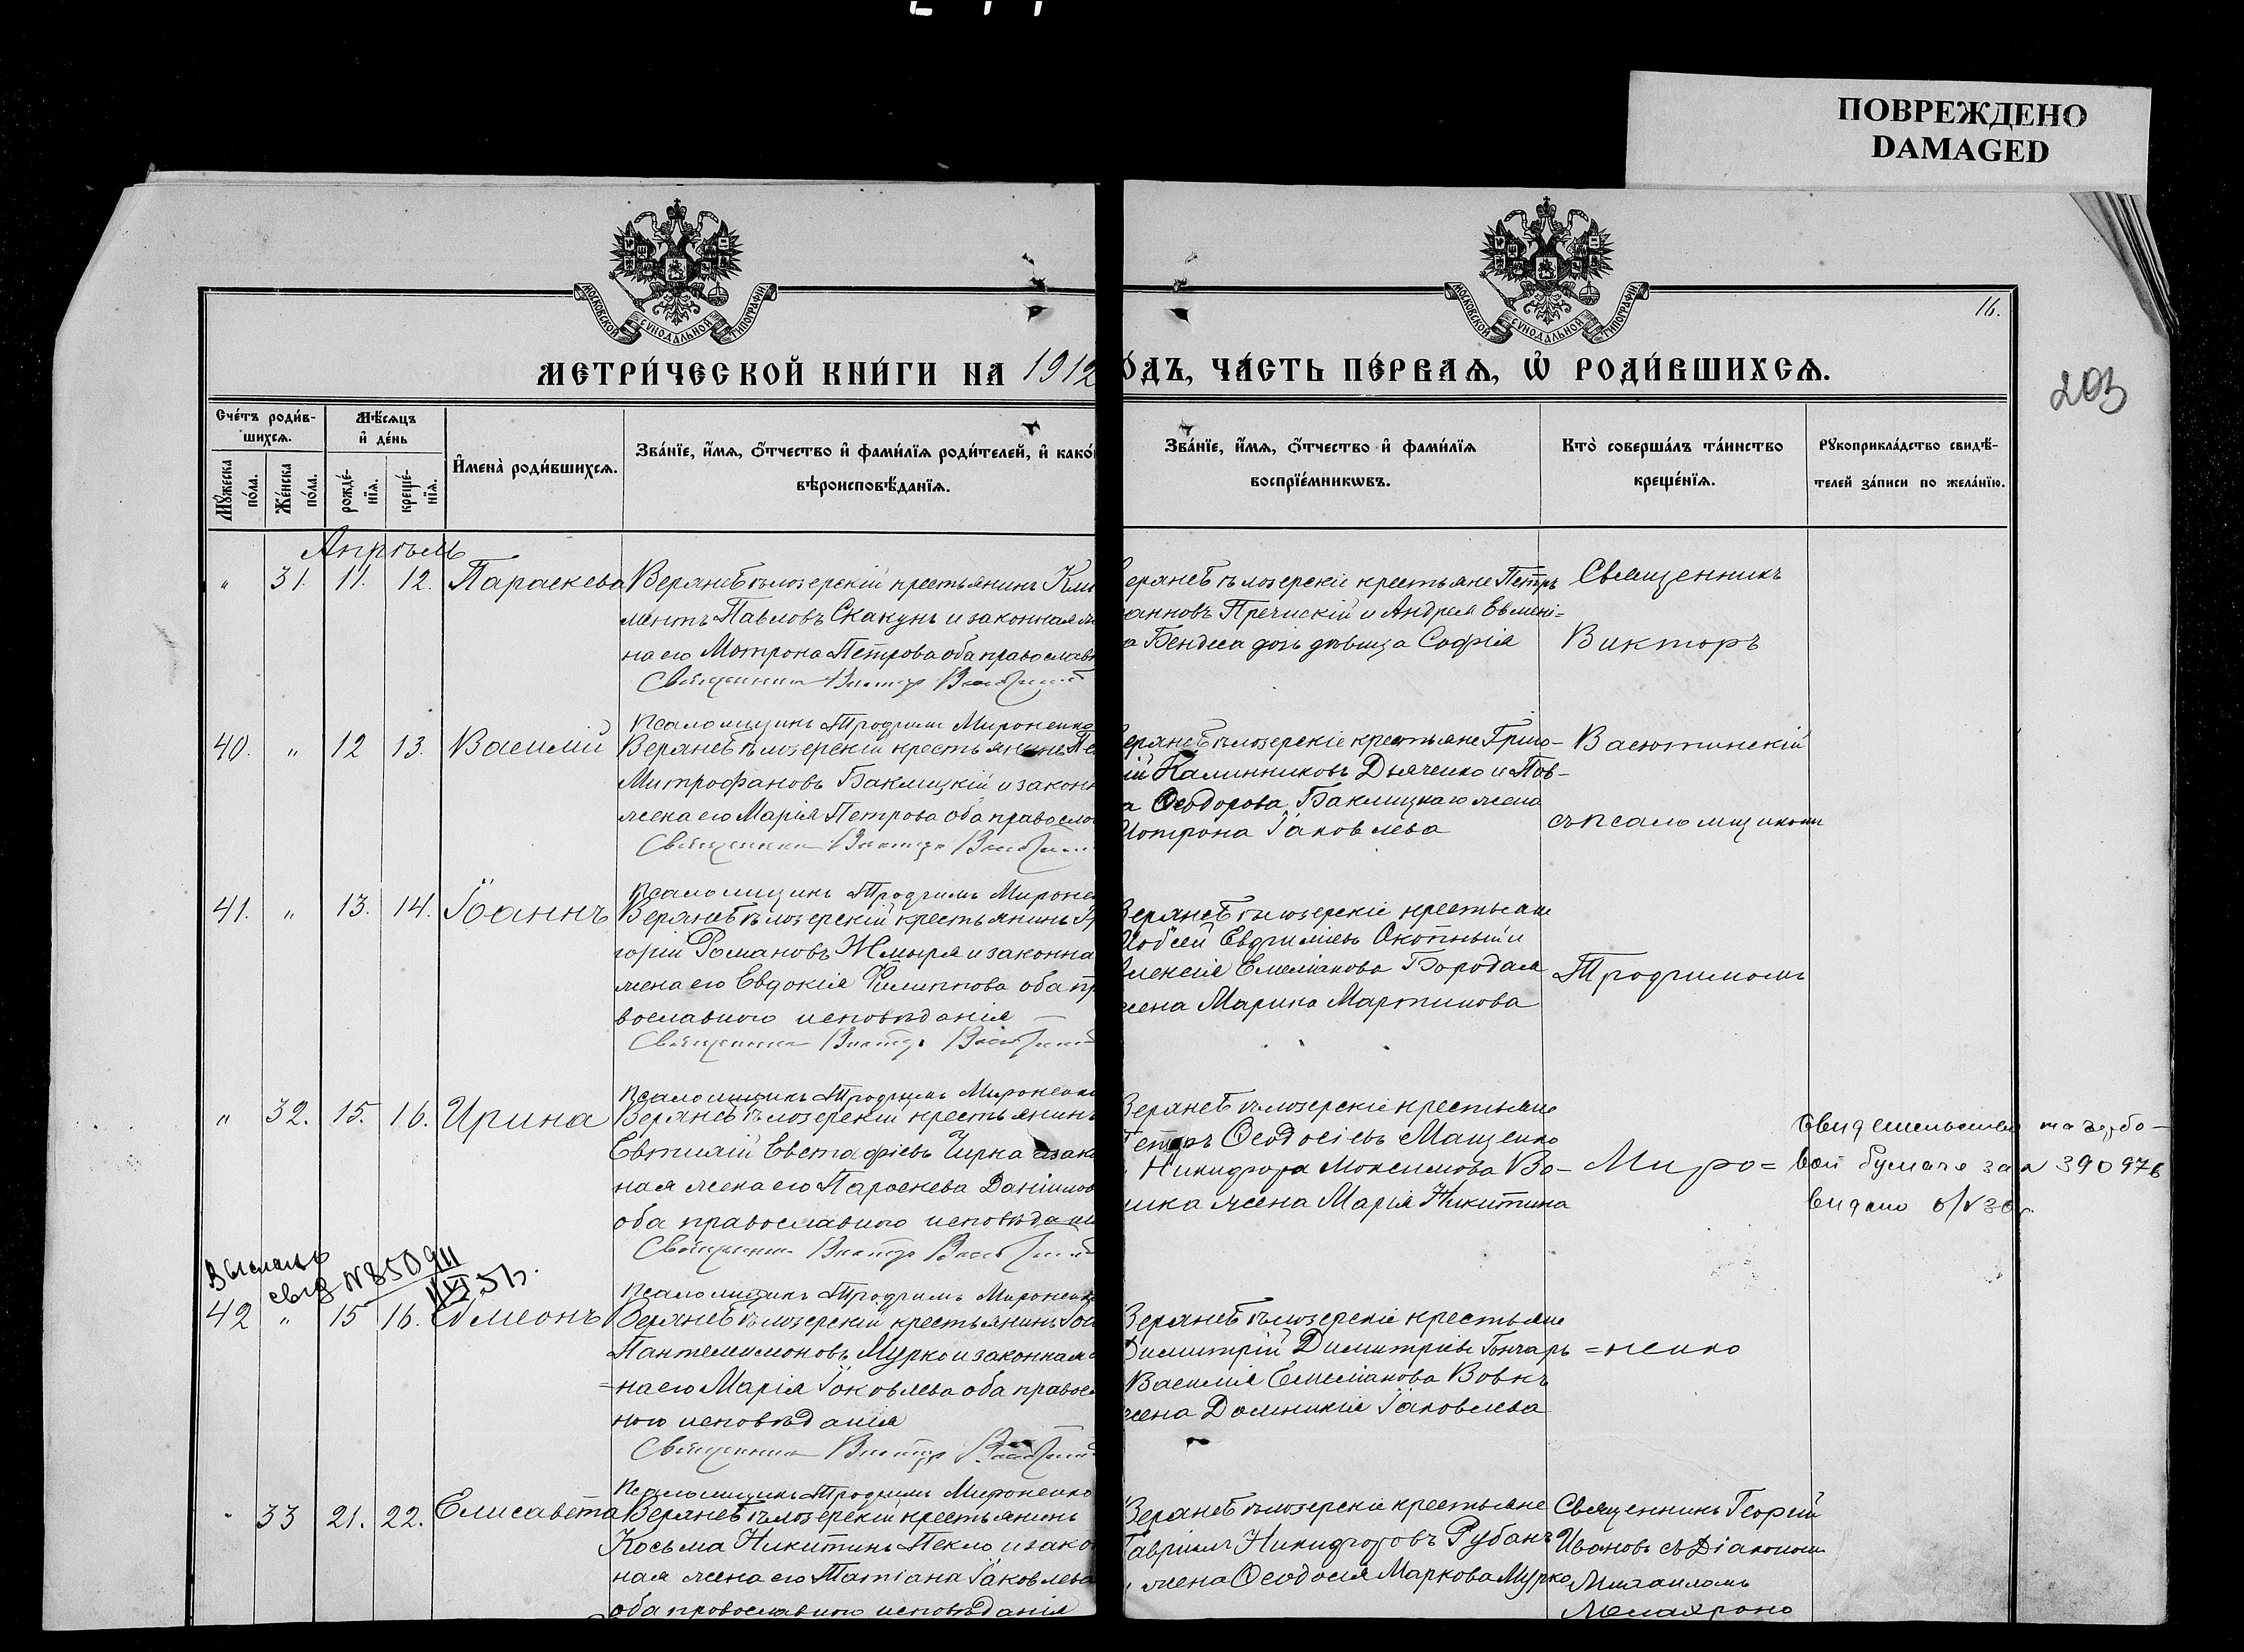 ПОВРЕЖДЕНО
DAMAGED
МОСКОВСКОЙ СѴНОДАЛЬНОЙ ТИПОГРАФІИ
МОСКОВСКОЙ СѴНОДАЛЬНОЙ ТИПОГРАФІИ
16.
МЕТРИ́ЧЕСКОЙ КНИ́ГИ НА 1912
О́ДЪ, ЧА́СТЬ ПЕ́РВАЯ, Ѡ҆ РОДИ́ВШИХСѦ.
203
Сче́тъ роди́в-
шихсѧ.
Мѣ́сѧцъ
и҆ де́нь
Мꙋ́жеска по́ла.
Же́нска по́ла.
рожде́-нїѧ.
креще́-нїѧ.
И҆мена̀ роди́вшихсѧ.
Зва́нїе, и҆́мѧ, ѻ҆́тчество и҆ фами́лїѧ роди́телей, и҆ како́
вѣроисповѣ́данїѧ.
Зва́нїе, и҆́мѧ, ѻ҆́тчество и҆ фами́лїѧ
воспрїе́мникѡвъ.
Кто̀ соверша́лъ та́инство
креще́нїѧ.
Рꙋкоприкла́дство свидѣ́-
телей за́писи по жела́нїю.
Апрѣль
" 31. 11. 12. Параскева
Верхнебѣлозерскій крестьянинъ Кли
ментъ Павловъ Скакунъ и законная же
на его Матрона Петрова оба православн
Священникъ Викторъ
ерхнебѣлозерскіе крестьяне Петръ
и Андрея Евмені=
а Бендеса дочь дѣвица Софія
Священникъ
Викторъ
Псаломщикъ Трофимъ Мироненко
40. " 12 13. Василій
Верхнебѣлозерскій крестьянинъ Пе
Митрофановъ Баклицкій и законн
жена его Марія Петрова оба православ
Священникъ Викторъ
ерхнебѣлозерскіе крестьяне Григо-
ій Калинниковъ Дьяченко и Пав-
а Ѳеодорова Баклицкаго жена
Матрона Іаковлева
Васютинскій
съ псаломщикомъ
Псаломщикъ Трофимъ Мироне
41. " 13. 14. Іоаннъ
Верхнебѣлозерскій крестьянинъ Гр
горій Романовъ Жмыря и законна
жена его Евдокія Филиппова оба пр
вославного исповѣданія
Священникъ Викторъ
Верхнебѣлозерскіе крестьяне
Моѵсей Евфиміевъ Окопный и
Алексія Емеліанова Бородая
жена Марина Мартинова
Трофимомъ
Псаломщикъ Трофимъ Мироненко
" 32. 15. 16. Ирина
Верхнебѣлозерскій крестьянинъ
Евтихій Евстафіевъ Чирка и зако
ная жена его Параскева Даніилов
оба православного исповѣдані
Священникъ Викторъ
Верхнебѣлозерскіе крестьяне
Петръ Ѳеодосіевъ Мащенко
Никифора Максимова Во-
жена Марія Никитина
Миро=
бумаге за № 390976
видано
Выслано
свид №850911
Псаломщикъ Трофимъ Мироненко
42 " 15 16. Сѵмеонъ
Верхнебѣлозерскій крестьянинъ
Пантелимоновъ Мурко и законная
=на его Марія Іаковлева оба правос
ного исповѣданія
Священникъ Викторъ
Верхнебѣлозерскіе крестьяне
Димитрій Димитріевъ Гончаръ
Василія Емеліанова Вовкъ
жена Домникія Іаковлева
=ненко
Псаломщикъ Трофимъ Мироненко
" 33 21. 22. Елисавета
Верхнебѣлозерскій крестьянинъ
Косьма Никитинъ Пекло и зако
ная жена его Татіана Іаковлева
оба православного исповѣданія
Верхнебѣлозерскіе крестьяне
Гавріилъ Никифоровъ Рубанъ
жена Ѳеодосія Маркова Мурко
Священникъ Георгій
Ивановъ съ Діакономъ
Михаиломъ